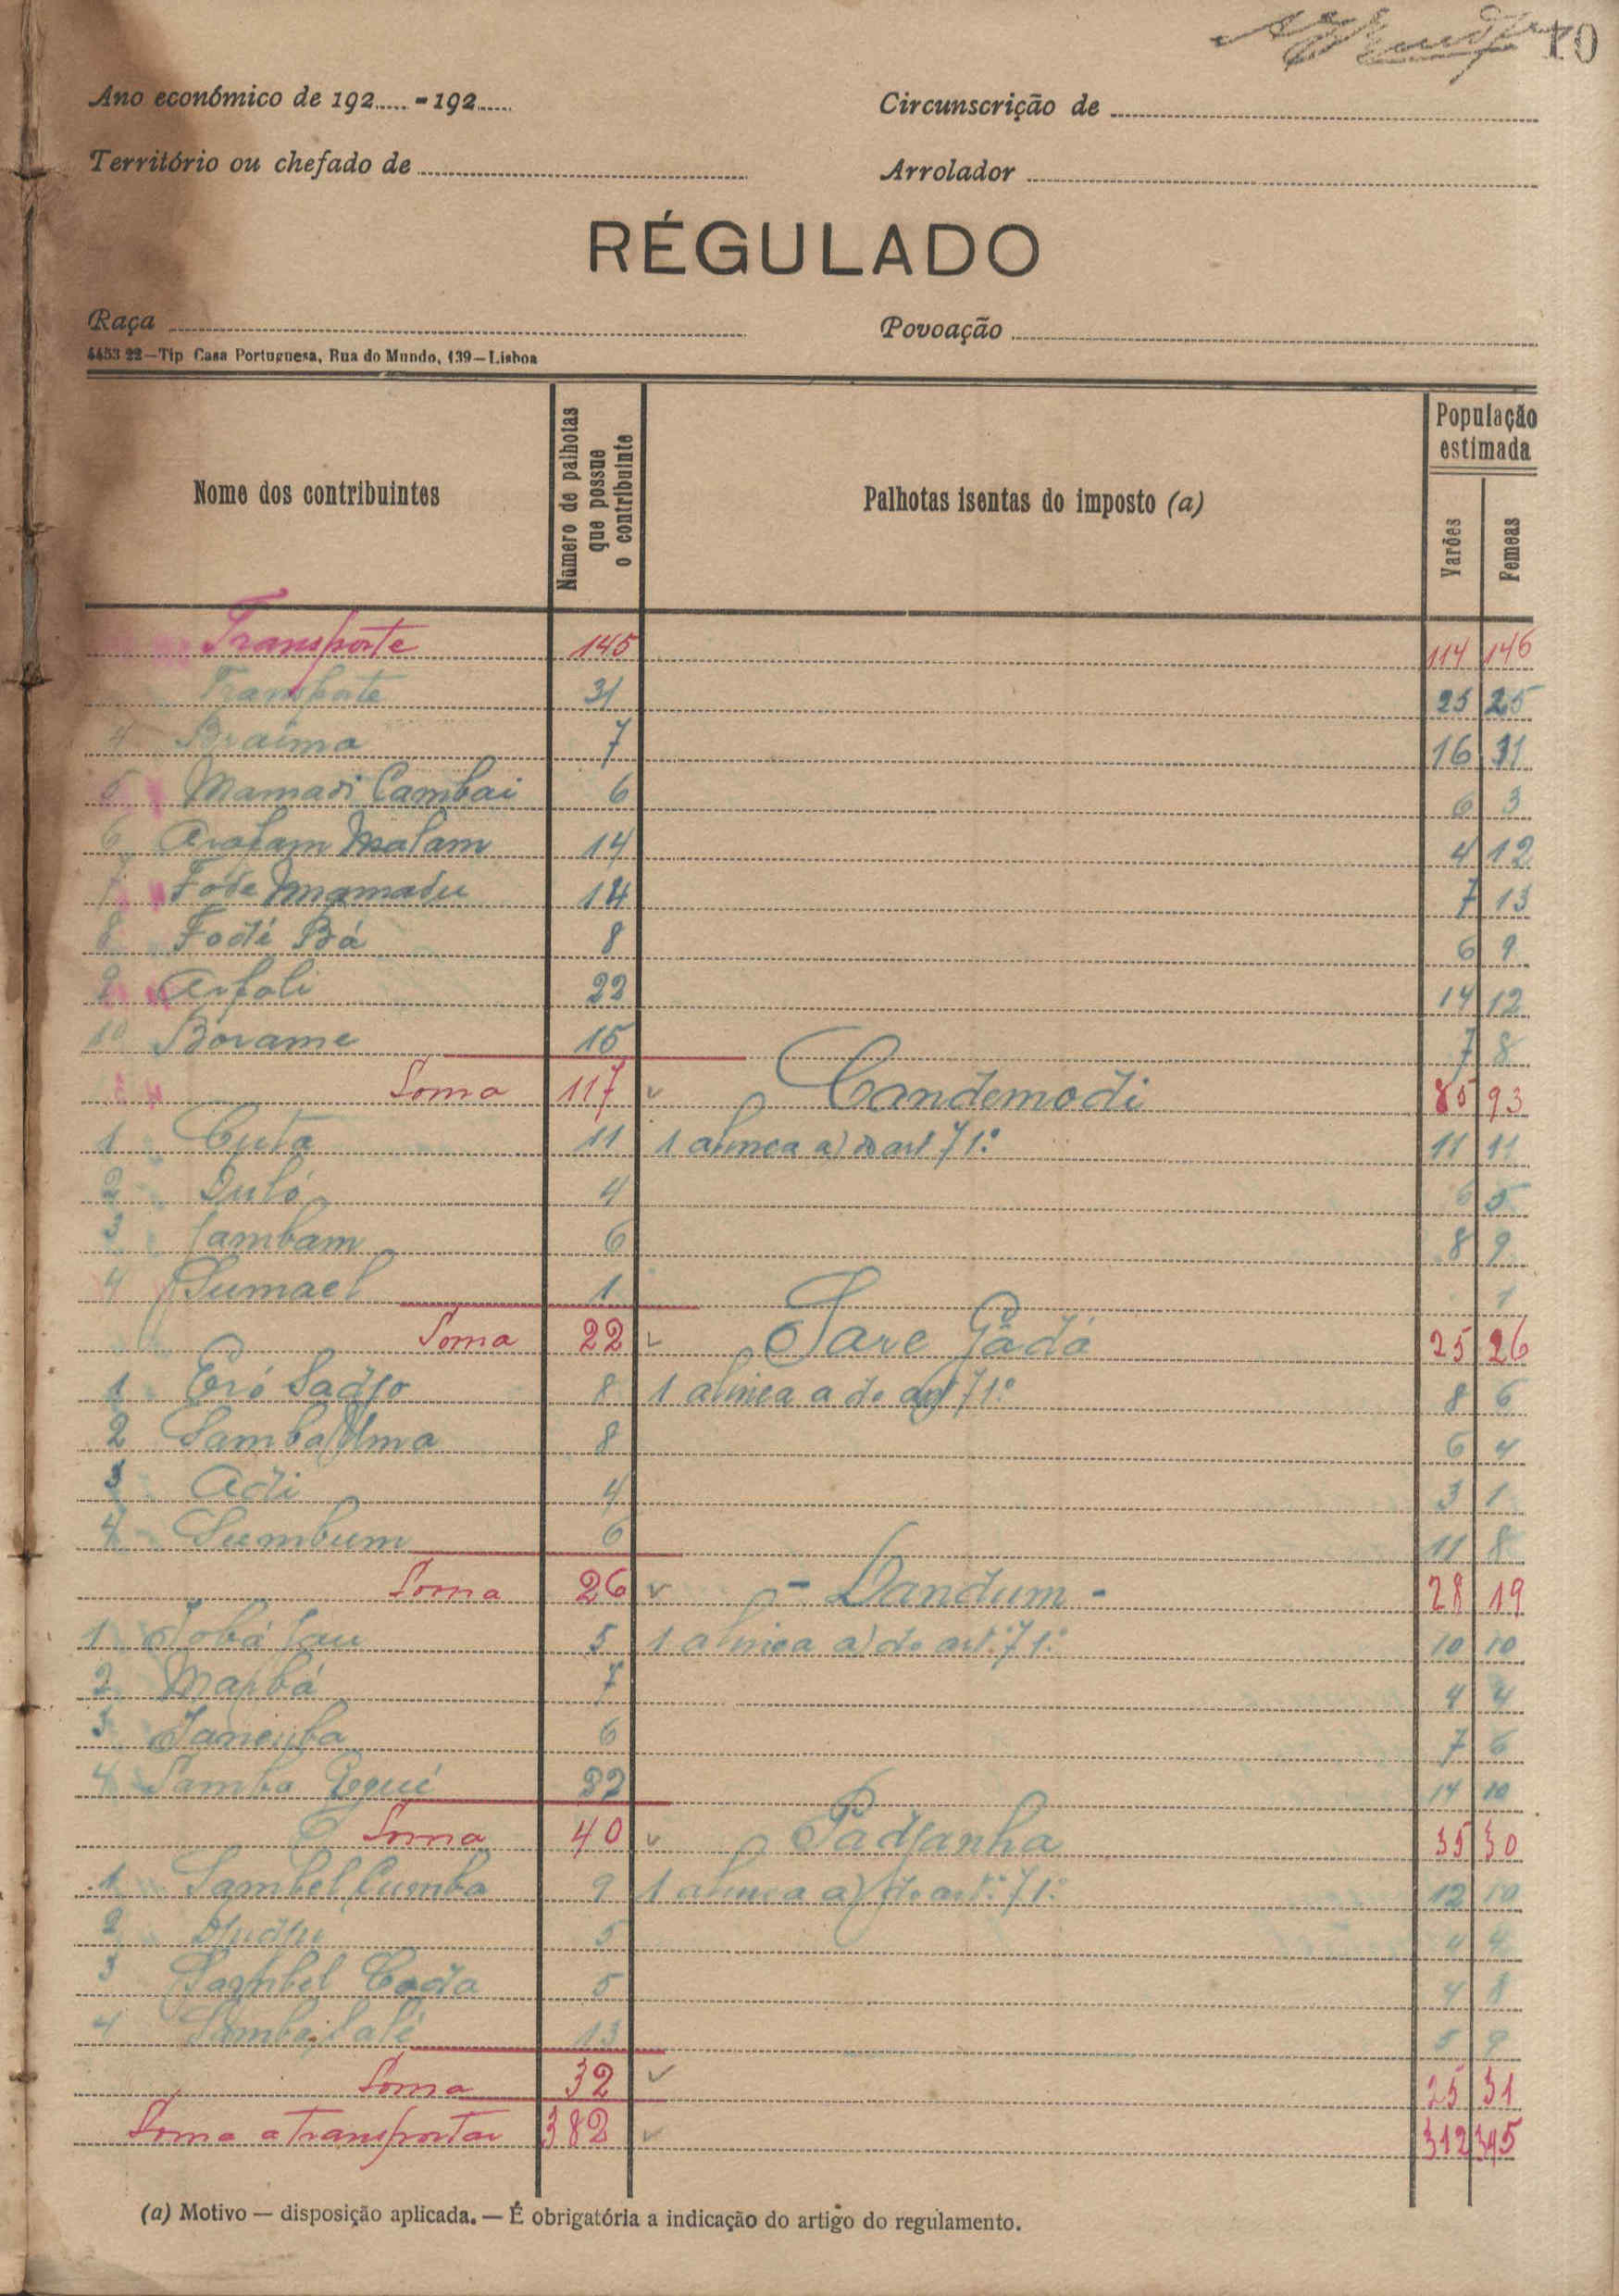 10
Ano económico de 192..... - 192......
Circunscrição de
Território ou chefado de
Arrolador
RÉGULADO
Raça
Povoação
4453 22—Tip Casa Portuguesa, Rua do Mundo, 139—Lisboa
Nome dos contribuintes
Número de palhotas que possue o contribuinte
Palhotas isentas do imposto (a)
População estimada
Varões
Femeas
Transporte 145 114 146
Transporte 31 25 25
4 Braima 7 16 11
5 Mamadi Cambai 6 6 3
6 Malam 14 4 12
7 Fóde Mamadu 14 7 13
8 Fodé Bá 8 6 9
9 Arfali 22 14 12
10 Borame 15 7 8
Soma 117 Candemodi 85 93
1 Cuta 11 1 alinea a) do art 71º 11 11
2 Duló 4 6 5
3 Iambam 6 8 9
4 Sumael 1 1
Soma 22 Sare Gádá 25 26
1 Eró Sadjo 8 1 alinea a do art 71º 8 6
2 Samba 8 6 4
3 Adi 4 3 1
4 Sumbum 6 11 8
Soma 26 - Dandum - 28 19
1 5 1 alinea a) do art.º 71º 10 10
2 7 4 4
3 6 7 6
4 Samba 22 14 10
Soma 40 Padjanha 35 30
1 Sambel Cumba 9 1 alinea a) do art.º 71º 12 10
2 5 4 4
3 Sambel 5 4 8
4 Samba 13 5 9
Soma 32 25 31
Soma a transportar 382 312 345
(a) Motivo — disposição aplicada. — É obrigatória a indicação do artigo do regulamento.